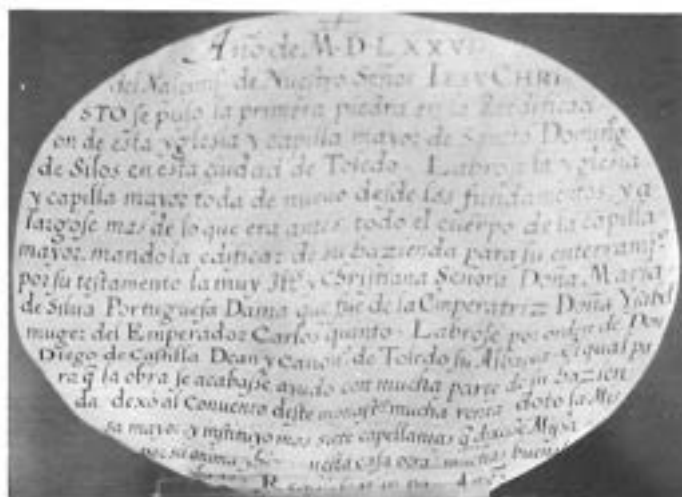 Año de M·D·LXXVI
del Nascimº de Nuestro Señor IESV CHRI
STO se puso la primera piedra en la Reedificaci
on de esta yglesia y capilla mayor de Sancto Domingo
de Silos en esta ciudad de Toledo · Labrose la yglesia
y capilla mayor toda de nuevo desde los fundamentos, y a
largose mas de lo que era antes todo el cuerpo de la capilla
mayor, mandola edificar de su hazienda para su enterramiº
por su testamento la muy Illº y christiana Señora Doña Maria
de Silva Portuguesa Dama que fue de la Emperatriz Doña Ysabel
muger del Emperador Carlos quinto · Labrose por orden de Don
Diego de Castilla Dean y Canonº de Toledo su Albacea · el qual pa
ra q̃ la obra se acabasse ayudo con mucha parte de su hazien
da dexo al Convento deste monasº mucha renta doto la Mis
sa mayor y instituyo mas siete capellanias q̃ Missa
por su anima y esta casa otras muchas buenas